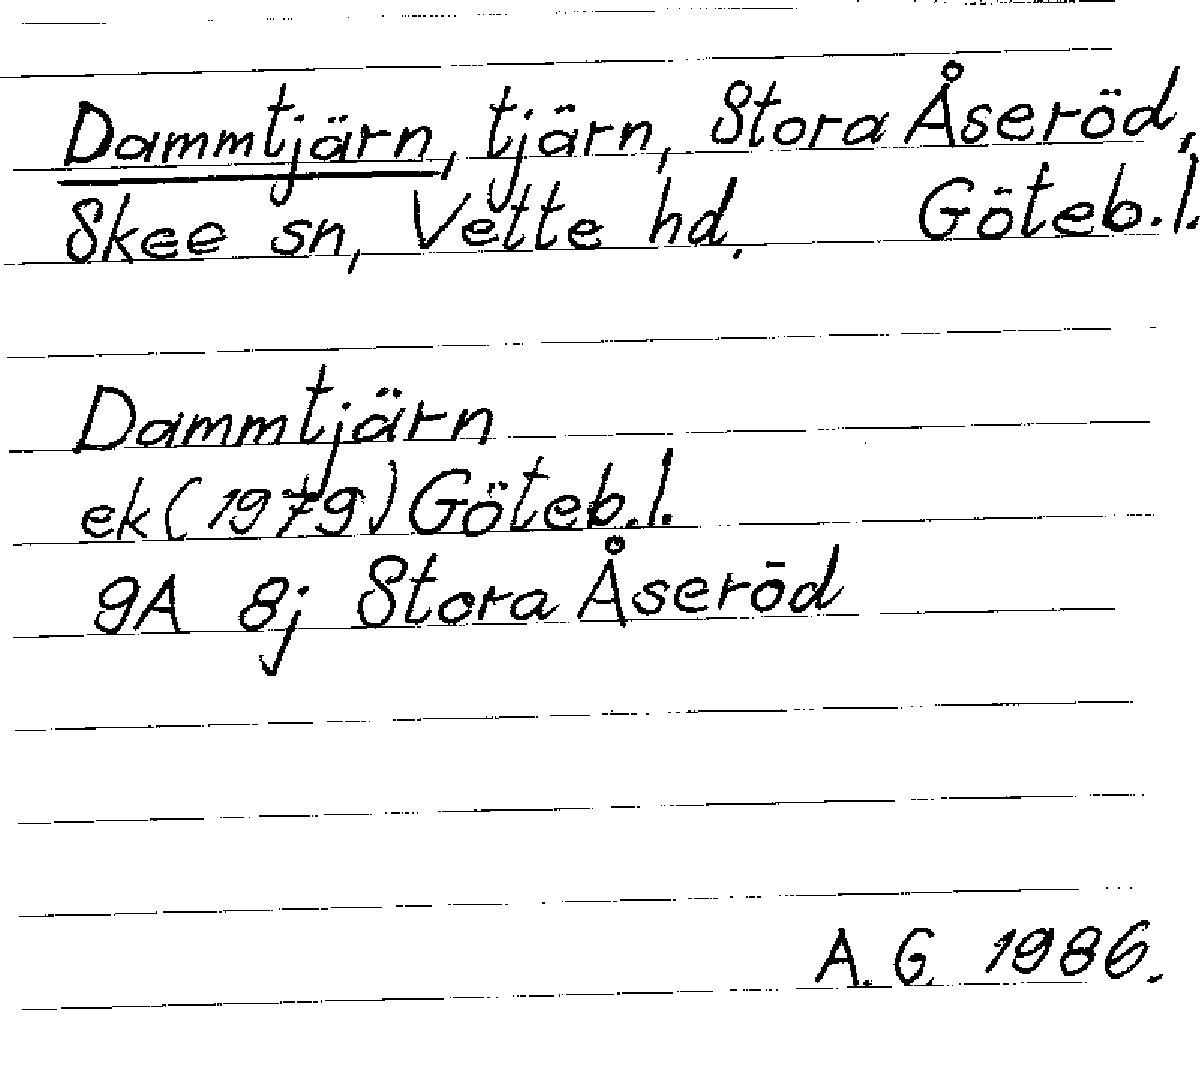 Dammtjärn, tjärn, Stora Åseröd,
Skee sn, Vette hd. Göteb.l.
Dammtjärn
ek (1979) Göteb.l.
9A 8j Stora Åseröd
A.G. 1986.